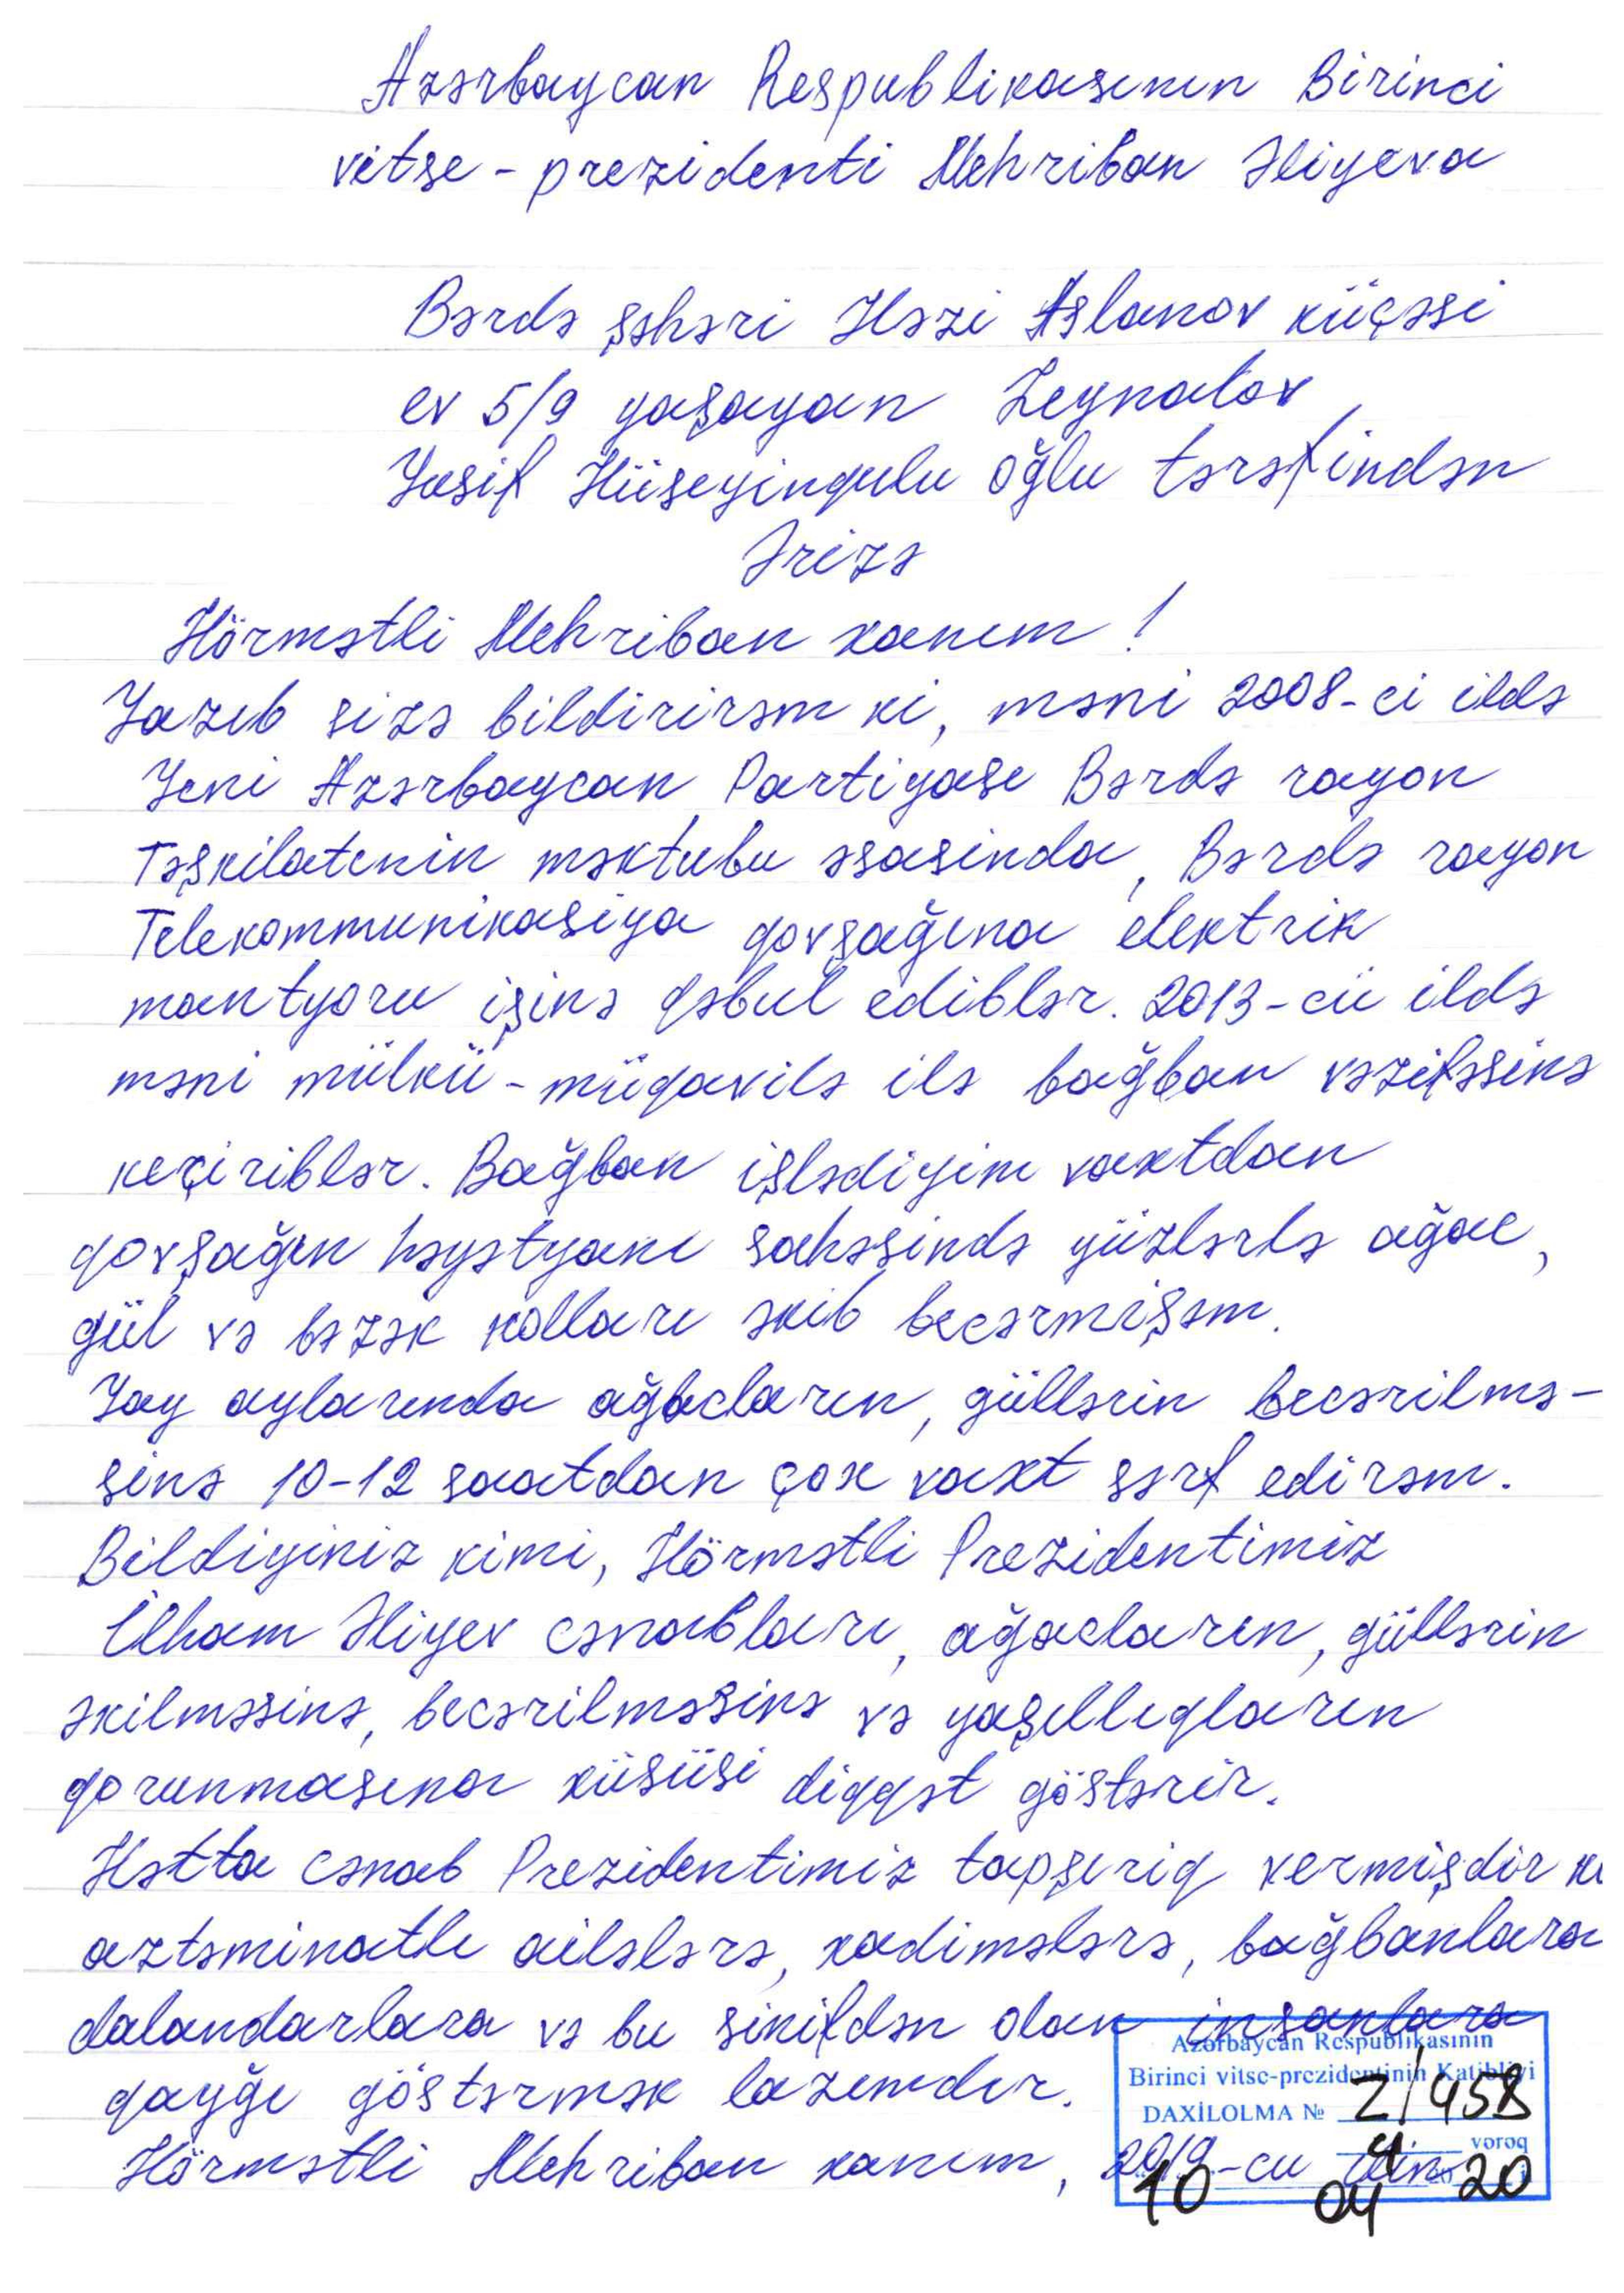 Azərbaycan Respublikasının Birinci
vitse-prezidenti Mehriban Əliyeva
Bərdə şəhəri Həzi Aslanov küçəsi
ev 5/9 yaşayan Zeynalov
Yusif Hüseyinqulu oğlu tərəfindən
Ərizə
Hörmətli Mehriban xanım!
Yazıb sizə bildirirəm ki, məni 2008-ci ildə
Yeni Azərbaycan Partiyası Bərdə rayon
Təşkilatının məktubu əsasında, Bərdə rayon
Telekommunikasiya qovşağına elektrik
mantyoru işinə qəbul ediblər. 2013-cü ildə
məni mülkü-müqavilə ilə bağban vəzifəsinə
keçiriblər. Bağban işlədiyim vaxtdan
qovşağın həyətyanı sahəsində yüzlərlə ağac,
gül və bəzək kolları əkib becərmişəm.
Yay aylarında ağacların, güllərin becərilmə-
sinə 10-12 saatdan çox vaxt sərf edirəm.
Bildiyiniz kimi, Hörmətli Prezidentimiz
İlham Əliyev cənabları, ağacların, güllərin
əkilməsinə, becərilməsinə və yaşıllıqların
qorunmasına xüsüsi diqqət göstərir.
Hətta cənab Prezidentimiz tapşırıq vermişdir ki
aztəminatlı ailələrə, xadimələrə, bağbanlara
dalandarlara və bu sinifdən olan insanlara
qayğı göstərmək lazımdır.
Hörmətli Mehriban xanım, 2019-cu ilin
Azərbaycan Respublikasının
Birinci vitse-prezidentinin Katibliyi
DAXİLOLMA № Z/458
4 vərəq
10 04 20